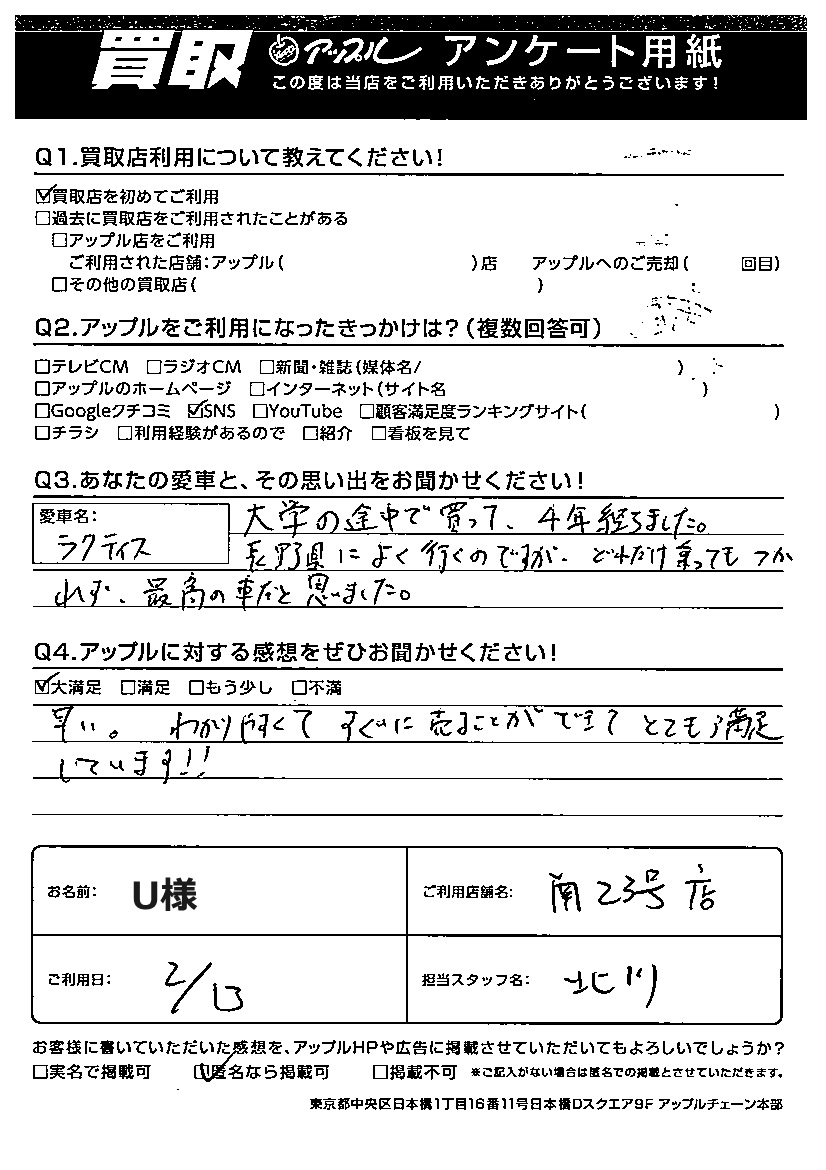 買取 アップル アンケート用紙
この度は当店をご利用いただきありがとうございます!
Q1.買取店利用について教えてください!
☑買取店を初めてご利用
□過去に買取店をご利用されたことがある
□アップル店をご利用
ご利用された店舗:アップル( )店 アップルへのご売却( 回目)
□その他の買取店( )
Q2.アップルをご利用になったきっかけは?(複数回答可)
□テレビCM □ラジオCM □新聞・雑誌(媒体名/ )
□アップルのホームページ □インターネット(サイト名 )
□Googleクチコミ ☑SNS □YouTube □顧客満足度ランキングサイト( )
□チラシ □利用経験があるので □紹介 □看板を見て
Q3.あなたの愛車と、その思い出をお聞かせください!
愛車名:
ラクティス
大学の途中で買って、4年経ちました。
長野県によく行くのですが、どれだけ乗ってもつか
れず、最高の車だと思いました。
Q4.アップルに対する感想をぜひお聞かせください!
☑大満足 □満足 □もう少し □不満
早い。わかりやすくてすぐに売ることができてとても満足
しています!!
お名前: U様
ご利用店舗名: 南23号店
ご利用日: 2/13
担当スタッフ名: 北川
お客様に書いていただいた感想を、アップルHPや広告に掲載させていただいてもよろしいでしょうか?
□実名で掲載可 ☑匿名なら掲載可 □掲載不可 ※ご記入がない場合は匿名での掲載とさせていただきます。
東京都中央区日本橋1丁目16番11号日本橋Dスクエア9F アップルチェーン本部